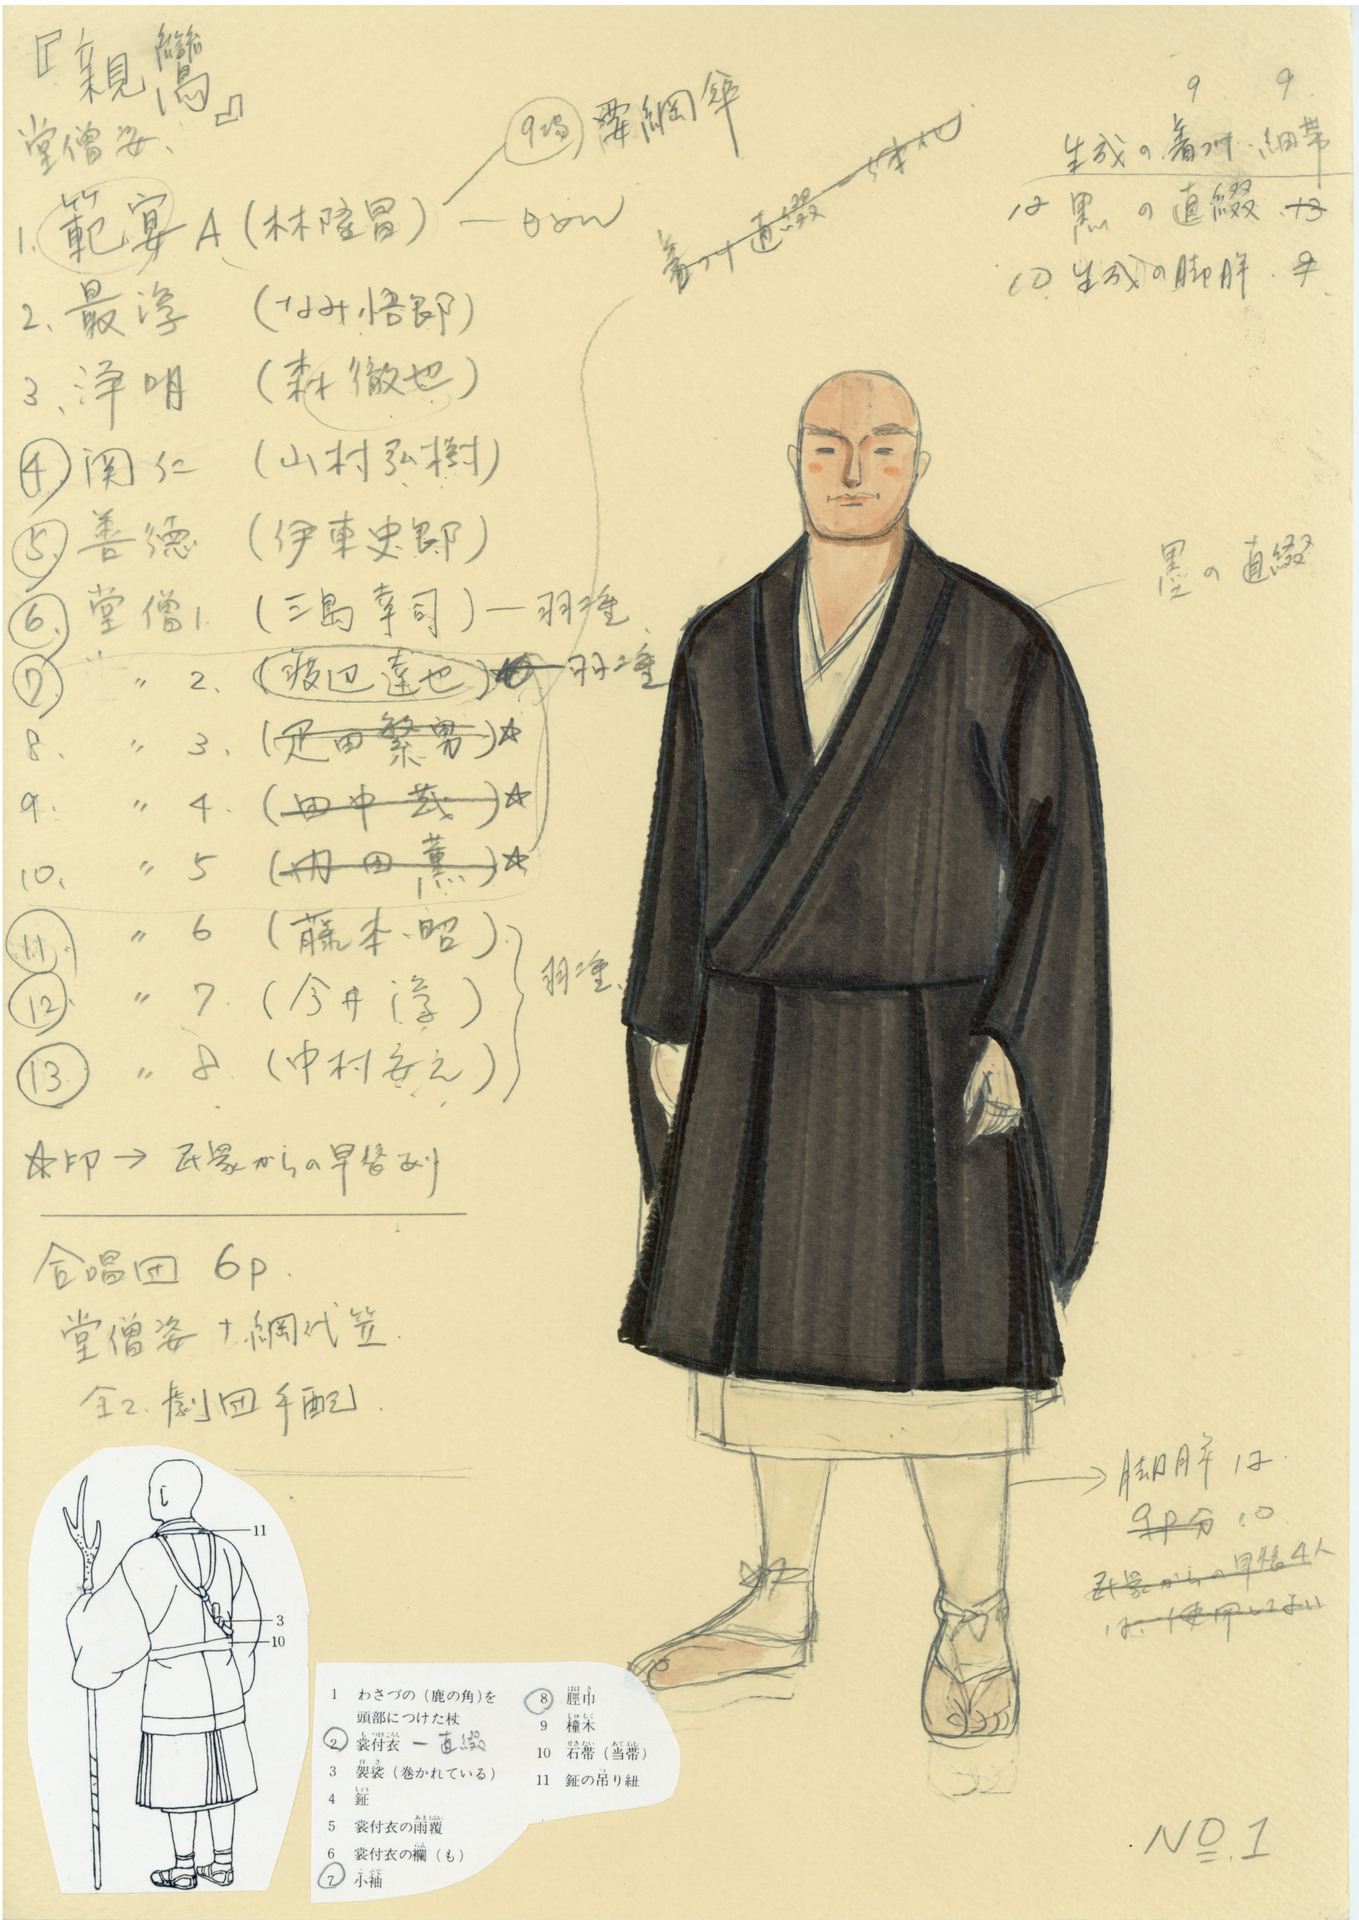 『親鸞』
堂僧姿、
9場
1. 範宴 A (林隆昌)
2. 最淳 (なみ悟郎)
3、 浄明 (森 徹也)
4 関仁 (山村弘樹)
5 善徳 (伊東史郎)
6. 堂僧1. (三島幸司) ー 羽二重
7 〃 2. (渡辺達也) 羽二重
8. 〃 3. (疋田繁男)☆
9. 〃 4. (田中 )☆
10. 〃 5 (内田 薫)☆
11 〃 6 (藤本 昭)
12 〃 7. (今井 淳)
羽二重、
13 〃 8. (中村 )
☆印 → 民衆からの早替あり
合唱団 6p.
堂僧姿 + 網代笠.
全て.劇団手配.
9 9
生成の着つけ・細帯
は 黒の直綴
10. 生成の脚絆.
墨の直綴
脚絆は
9p分 10
民衆からの早替4人
は、使用しない
11
3
10
1 わさづの(鹿の角)を
頭部につけた杖
2 裳付衣 ー 直綴
3 袈裟(巻かれている)
4 鉦
5 裳付衣の雨覆
6 裳付衣の襴(も)
7 小袖
8 脛巾
9 橦木
10 石帯(当帯)
11 鉦の吊り紐
No.1